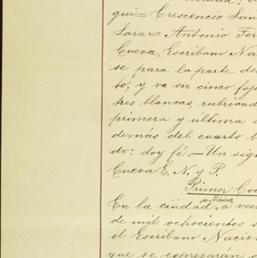 qui= Crescencio San
Lara= Antonio Fer
Cueva, Escribano Nac
se para la parte de
to, y va en cinco foj
tres blancas, rubricad
primera y última
demás del cuarto b
do: doy fé= Un sig
Cueva E. N. y P.
Primer Co
En la ciudad, a ve
de mil ochocientos s
el Escribano Nacio
que se expresarán